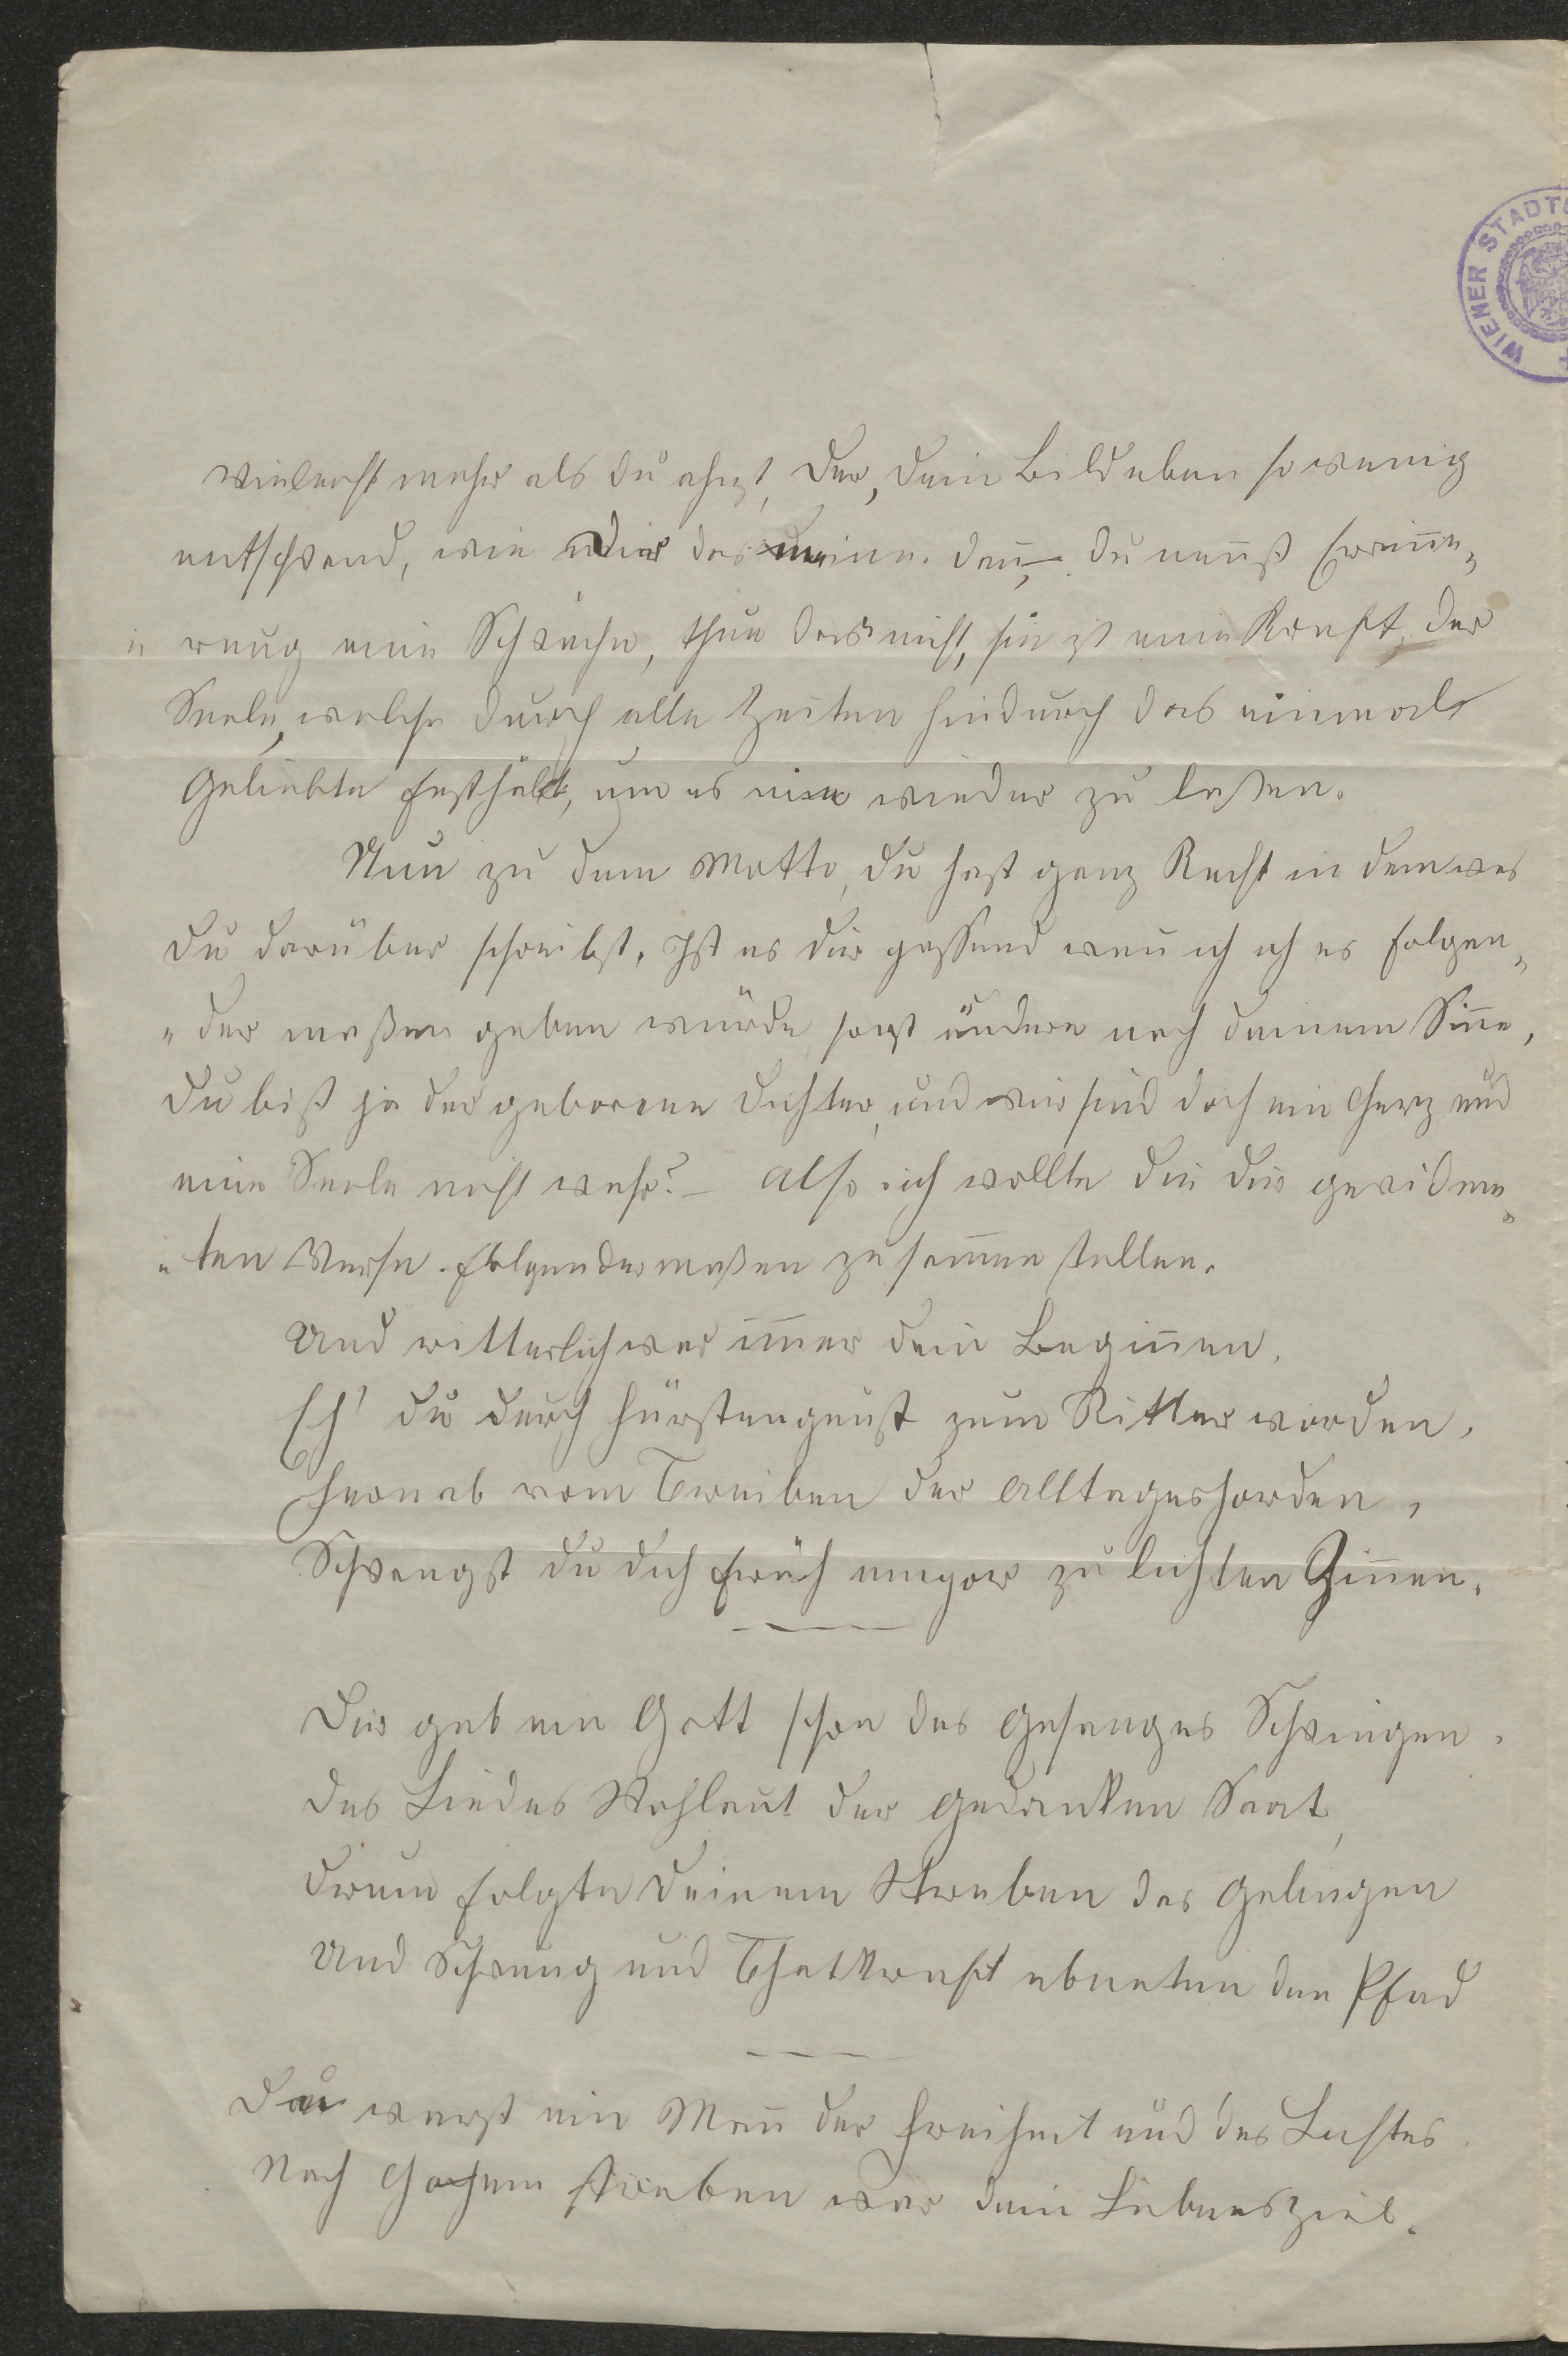 WIENER STADT
vielleicht mehr als du ahnst, der, dein Bild eben so wenig
entschwand, wie dir das meine. Den̄, – du nen̄st Erin̄e„
„rung eine Schwäche, thue das nicht, sie ist eine Kraft der
Seele, welche durch alle Zeiten hindurch das einmal
Geliebte festhält, um es nie wieder zu laßen.
Nun zu dem Motto, du hast ganz Recht in dem was
du darüber schreibst. Ist es dir passend wen̄ ich ich es folgen„
„der maßen geben würde sonst ändere nach deinem Sin̄e,
du bist ja der geborene Dichter, und wir sind doch ein Herz und
eine Seele nicht wahr? – Also ich wollte die dir gewidme„
„ten Verse folgendermaßen zusam̄enstellen.
Und ritterlich war im̄er dein Begin̄en,
Eh' du durch Fürstengunst zum Ritter worden,
Fernab vom Treiben der Alltageshorden,
Schwangst du dich früh empor zu lichten Zin̄en.
Dir gab ein Gott schon des Gesanges Schwingen,
Des Liedes Wohlaut der Gedanken Saat,
Drum folgte deinem Streben das Gelingen
Und Schwung und Thatkraft ebneten den Pfad
Du warst ein Man̄ der Freiheit und des Lichtes
Nach Hohem streben war dein Lebensziel.